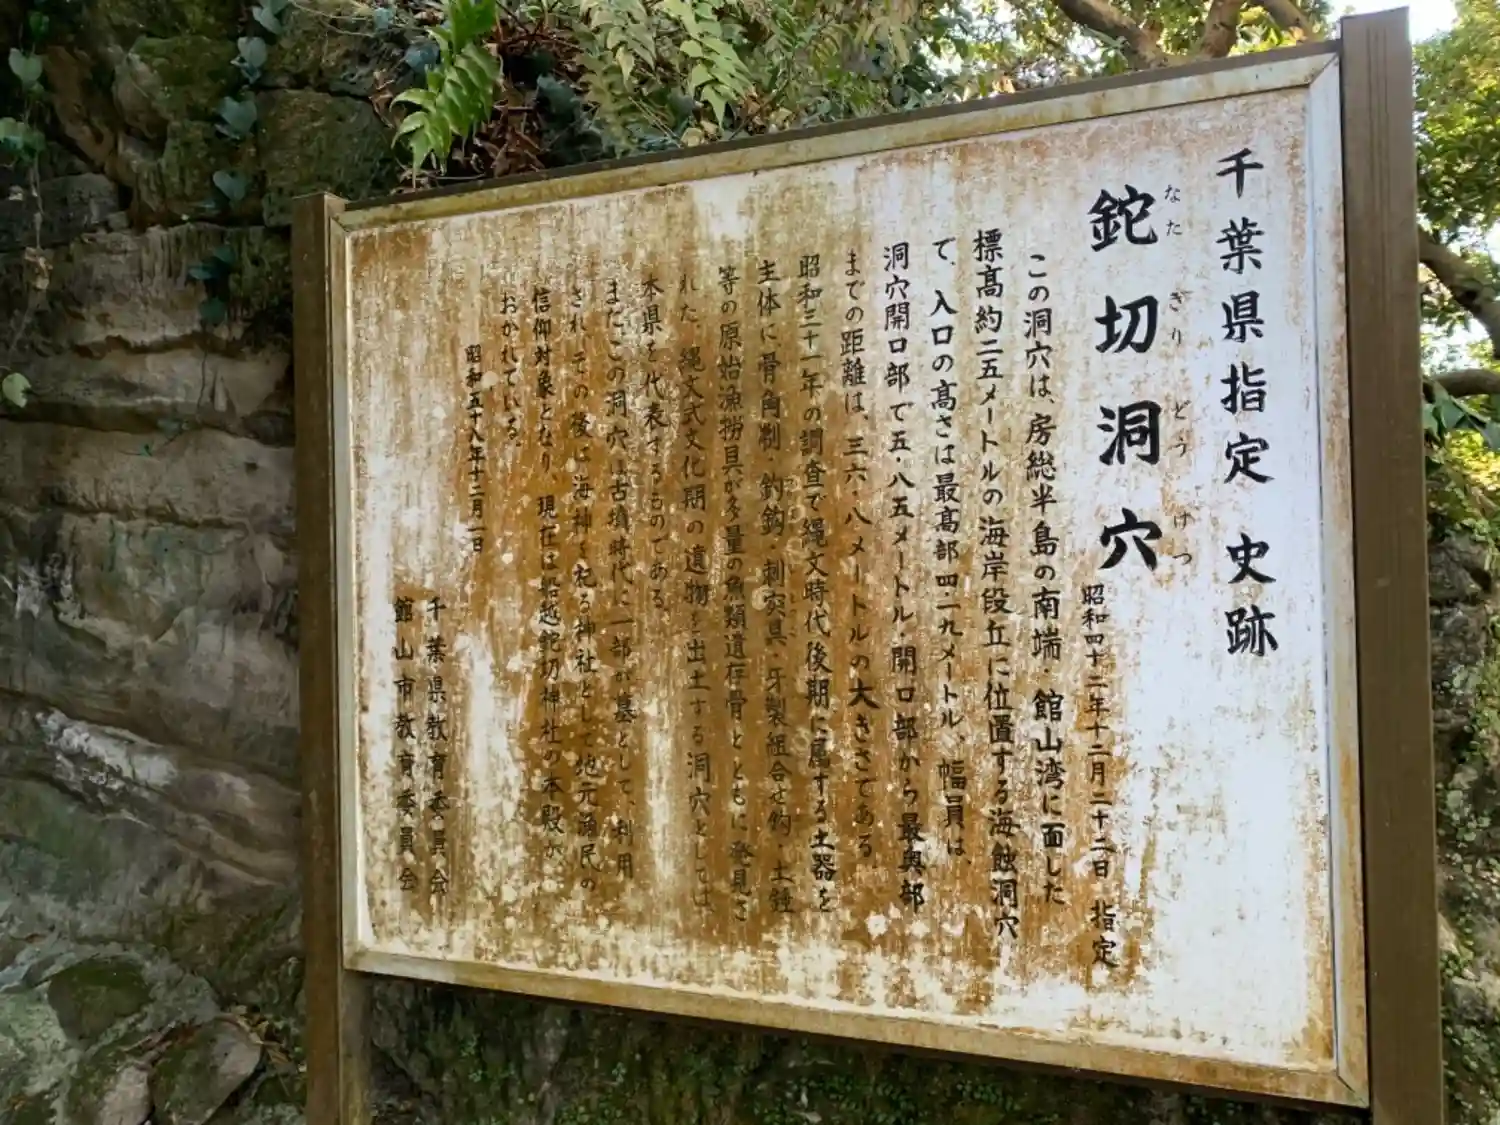 千葉県指定 史跡
鉈切洞穴
なた ぎり どう けつ
昭和四十二年十二月二十二日 指定
この洞穴は、房総半島の南端・館山湾に面した
標高約二五メートルの海岸段丘に位置する海蝕洞穴
で、入口の高さは最高部四・一九メートル、幅員は、
洞穴開口部で五・八五メートル・開口部から最奥部
までの距離は、三六・八メートルの大きさである。
昭和三十一年の調査で縄文時代後期に属する土器を
主体に骨角剥・釣鈎・刺突具・牙製組合せ釣・土錘
等の原始漁撈具が多量の魚類遺存骨とともに発見さ
れた。縄文式文化期の遺物を出土する洞穴としては
本県を代表するものである。
またこの洞穴は古墳時代に一部が墓として、利用
され、その後は海神を祀る神社として地元漁民の
信仰対象となり、現在は船越鉈切神社の本殿が
おかれている。
昭和五十八年十二月一日
千葉県教育委員会
館山市教育委員会